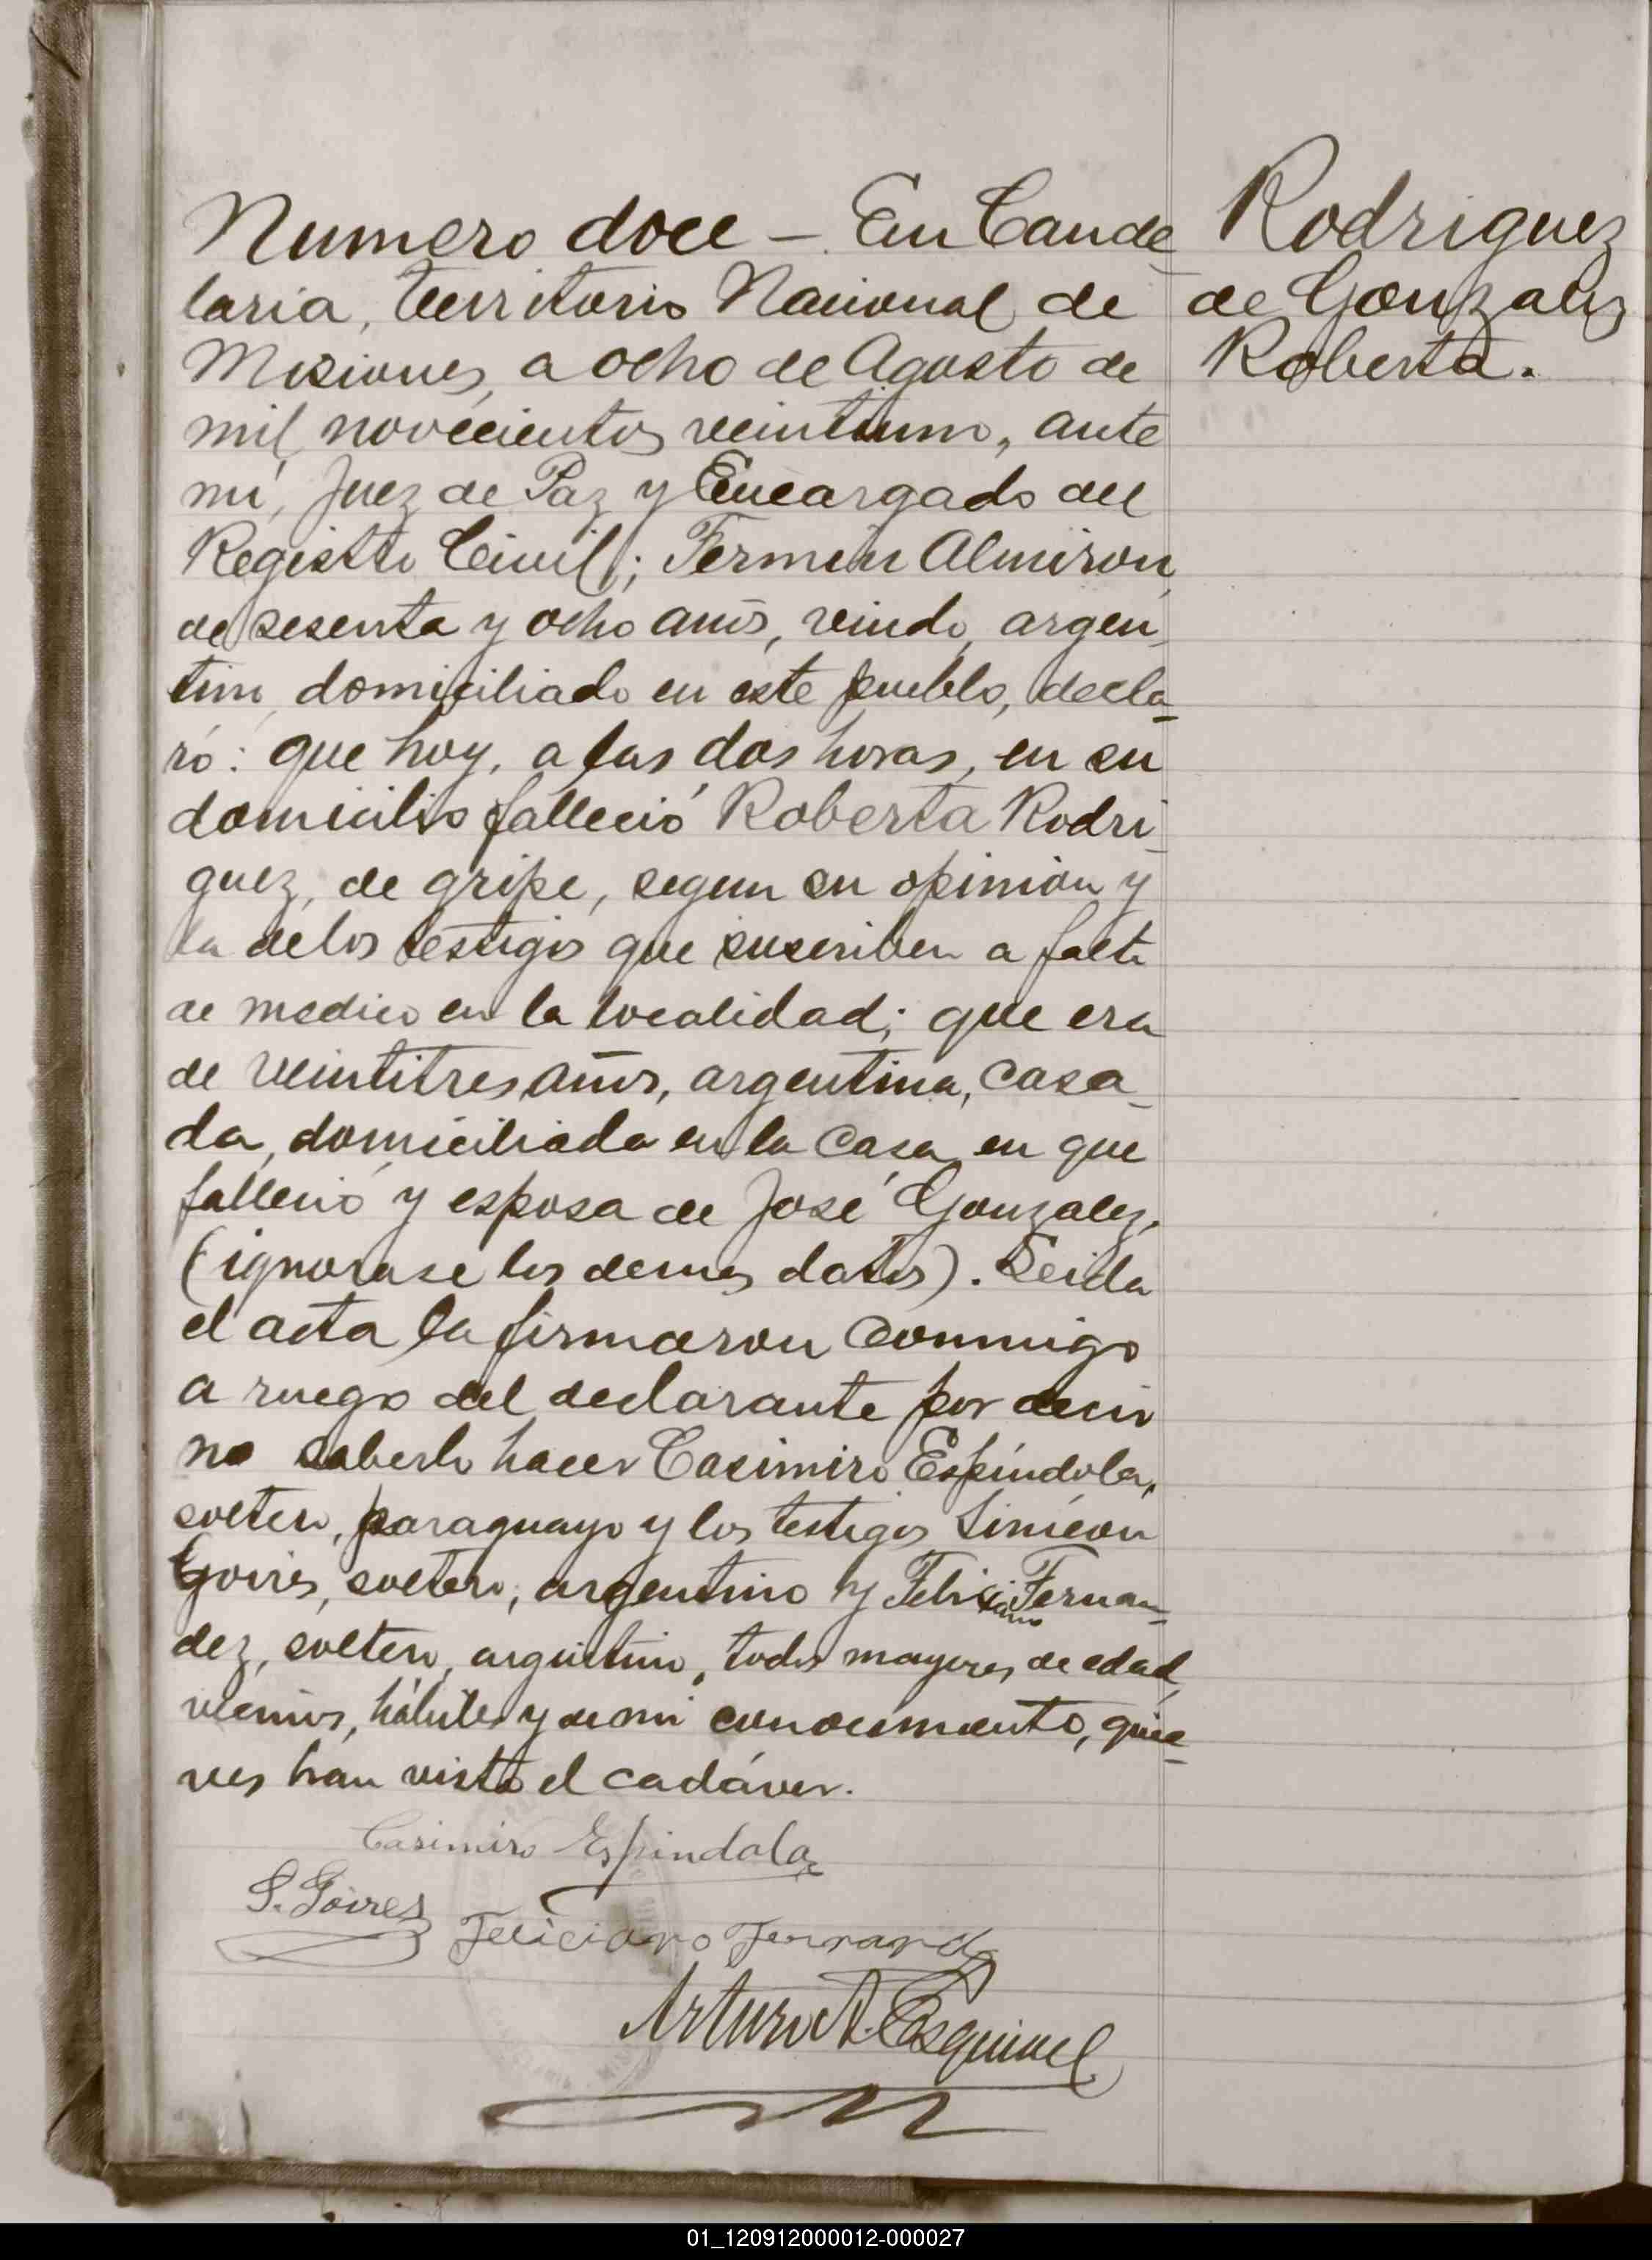 Numero doce - En Cande-
laria, territorio Nacional de
Misiones, a ocho de Agosto de
mil novecientos veintiuno, ante
mí, Juez de Paz y Encargado del
Registro Civil; Fermin Almiron,
de sesenta y ocho años, viudo, argen-
tino, domiciliado en este pueblo, decla-
ró: que hoy, a las dos horas, en su
domicilio falleció Roberta Rodri-
guez, de gripe, segun su opinión y
la de los testigos que suscriben a falta
de medico en la localidad; que era
de veintitres años, argentina, casa-
da, domiciliada en la casa en que
falleció y esposa de José Gonzalez,
(ignorase los demas datos). Leida
el acta la firmaron conmigo
a ruego del declarante por decir
no saberlo hacer Casimiro Espíndola,
soltero, paraguayo y los testigos Simeon
Goires, soltero, argentino y Feliciano Fernan-
dez, soltero, argentino, todos mayores de edad,
vecinos, hábiles y de mi conocimiento, quie-
nes han visto el cadáver.
Casimiro Espindola
S. Goires
Feliciano Fernandz
Arturo A. Esquivel
Rodriguez
de Gonzalez
Roberta.
01_120912000012-000027